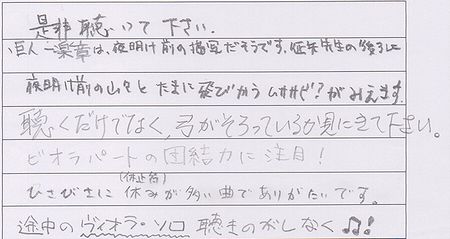 是非聴いて下さい.
巨人一楽章は、夜明け前の描写だそうです。
夜明け前の山々と たまに飛びかう ムササビ?がみえます.
聴くだけでなく、君がそろっているか見にきて下さい。
ビオラパートの団結力に注目!
(休止符)
ひさびさに 休みが多い曲でありがたいです。
途中のヴィオラ・ソロ 聴きのがしなく♫!